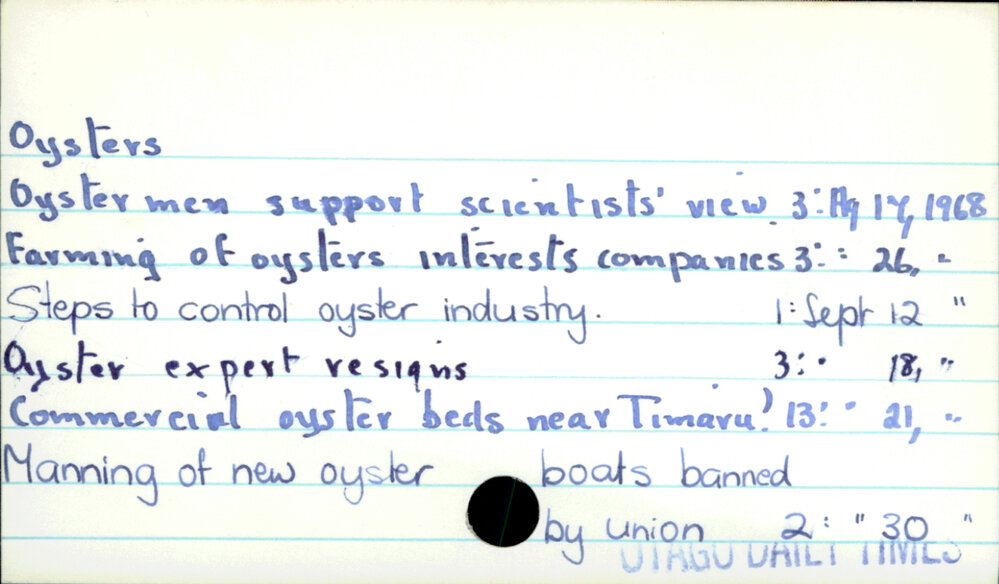 Oysters
Oyster men support scientists' view 3: Ag 17, 1968
Farming of oysters interests companies 3: " 26, "
Steps to control oyster industry. 1: Sept 12 "
Oyster expert resigns 3: " 18, "
Commercial oyster beds near Timaru? 13: " 21, "
Manning of new oyster boats banned
by union 2: " 30 "
OTAGO DAILY TIMES